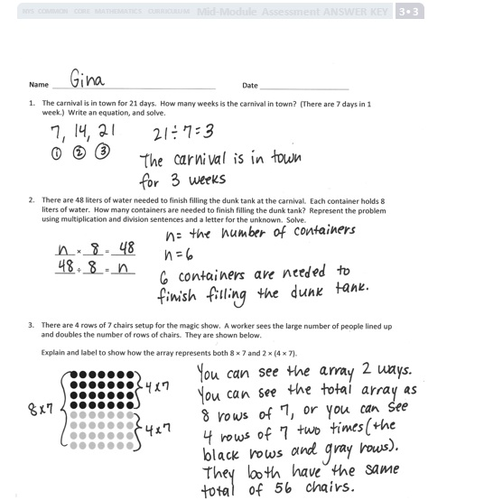 NYS COMMON CORE MATHEMATICS CURRICULUM Mid-Module Assessment ANSWER KEY 3•3
Name Gina Date
1. The carnival is in town for 21 days. How many weeks is the carnival in town? (There are 7 days in 1
week.) Write an equation, and solve.
7, 14, 21 21 ÷ 7 = 3
① ② ③ The carnival is in town
for 3 weeks
2. There are 48 liters of water needed to finish filling the dunk tank at the carnival. Each container holds 8
liters of water. How many containers are needed to finish filling the dunk tank? Represent the problem
using multiplication and division sentences and a letter for the unknown. Solve.
n = the number of containers
n × 8 = 48 n = 6
48 ÷ 8 = n 6 containers are needed to
finish filling the dunk tank.
3. There are 4 rows of 7 chairs setup for the magic show. A worker sees the large number of people lined up
and doubles the number of rows of chairs. They are shown below.
Explain and label to show how the array represents both 8 × 7 and 2 × (4 × 7).
8x7
4x7
4x7
You can see the array 2 ways.
You can see the total array as
8 rows of 7, or you can see
4 rows of 7 two times (the
black rows and gray rows).
They both have the same
total of 56 chairs.